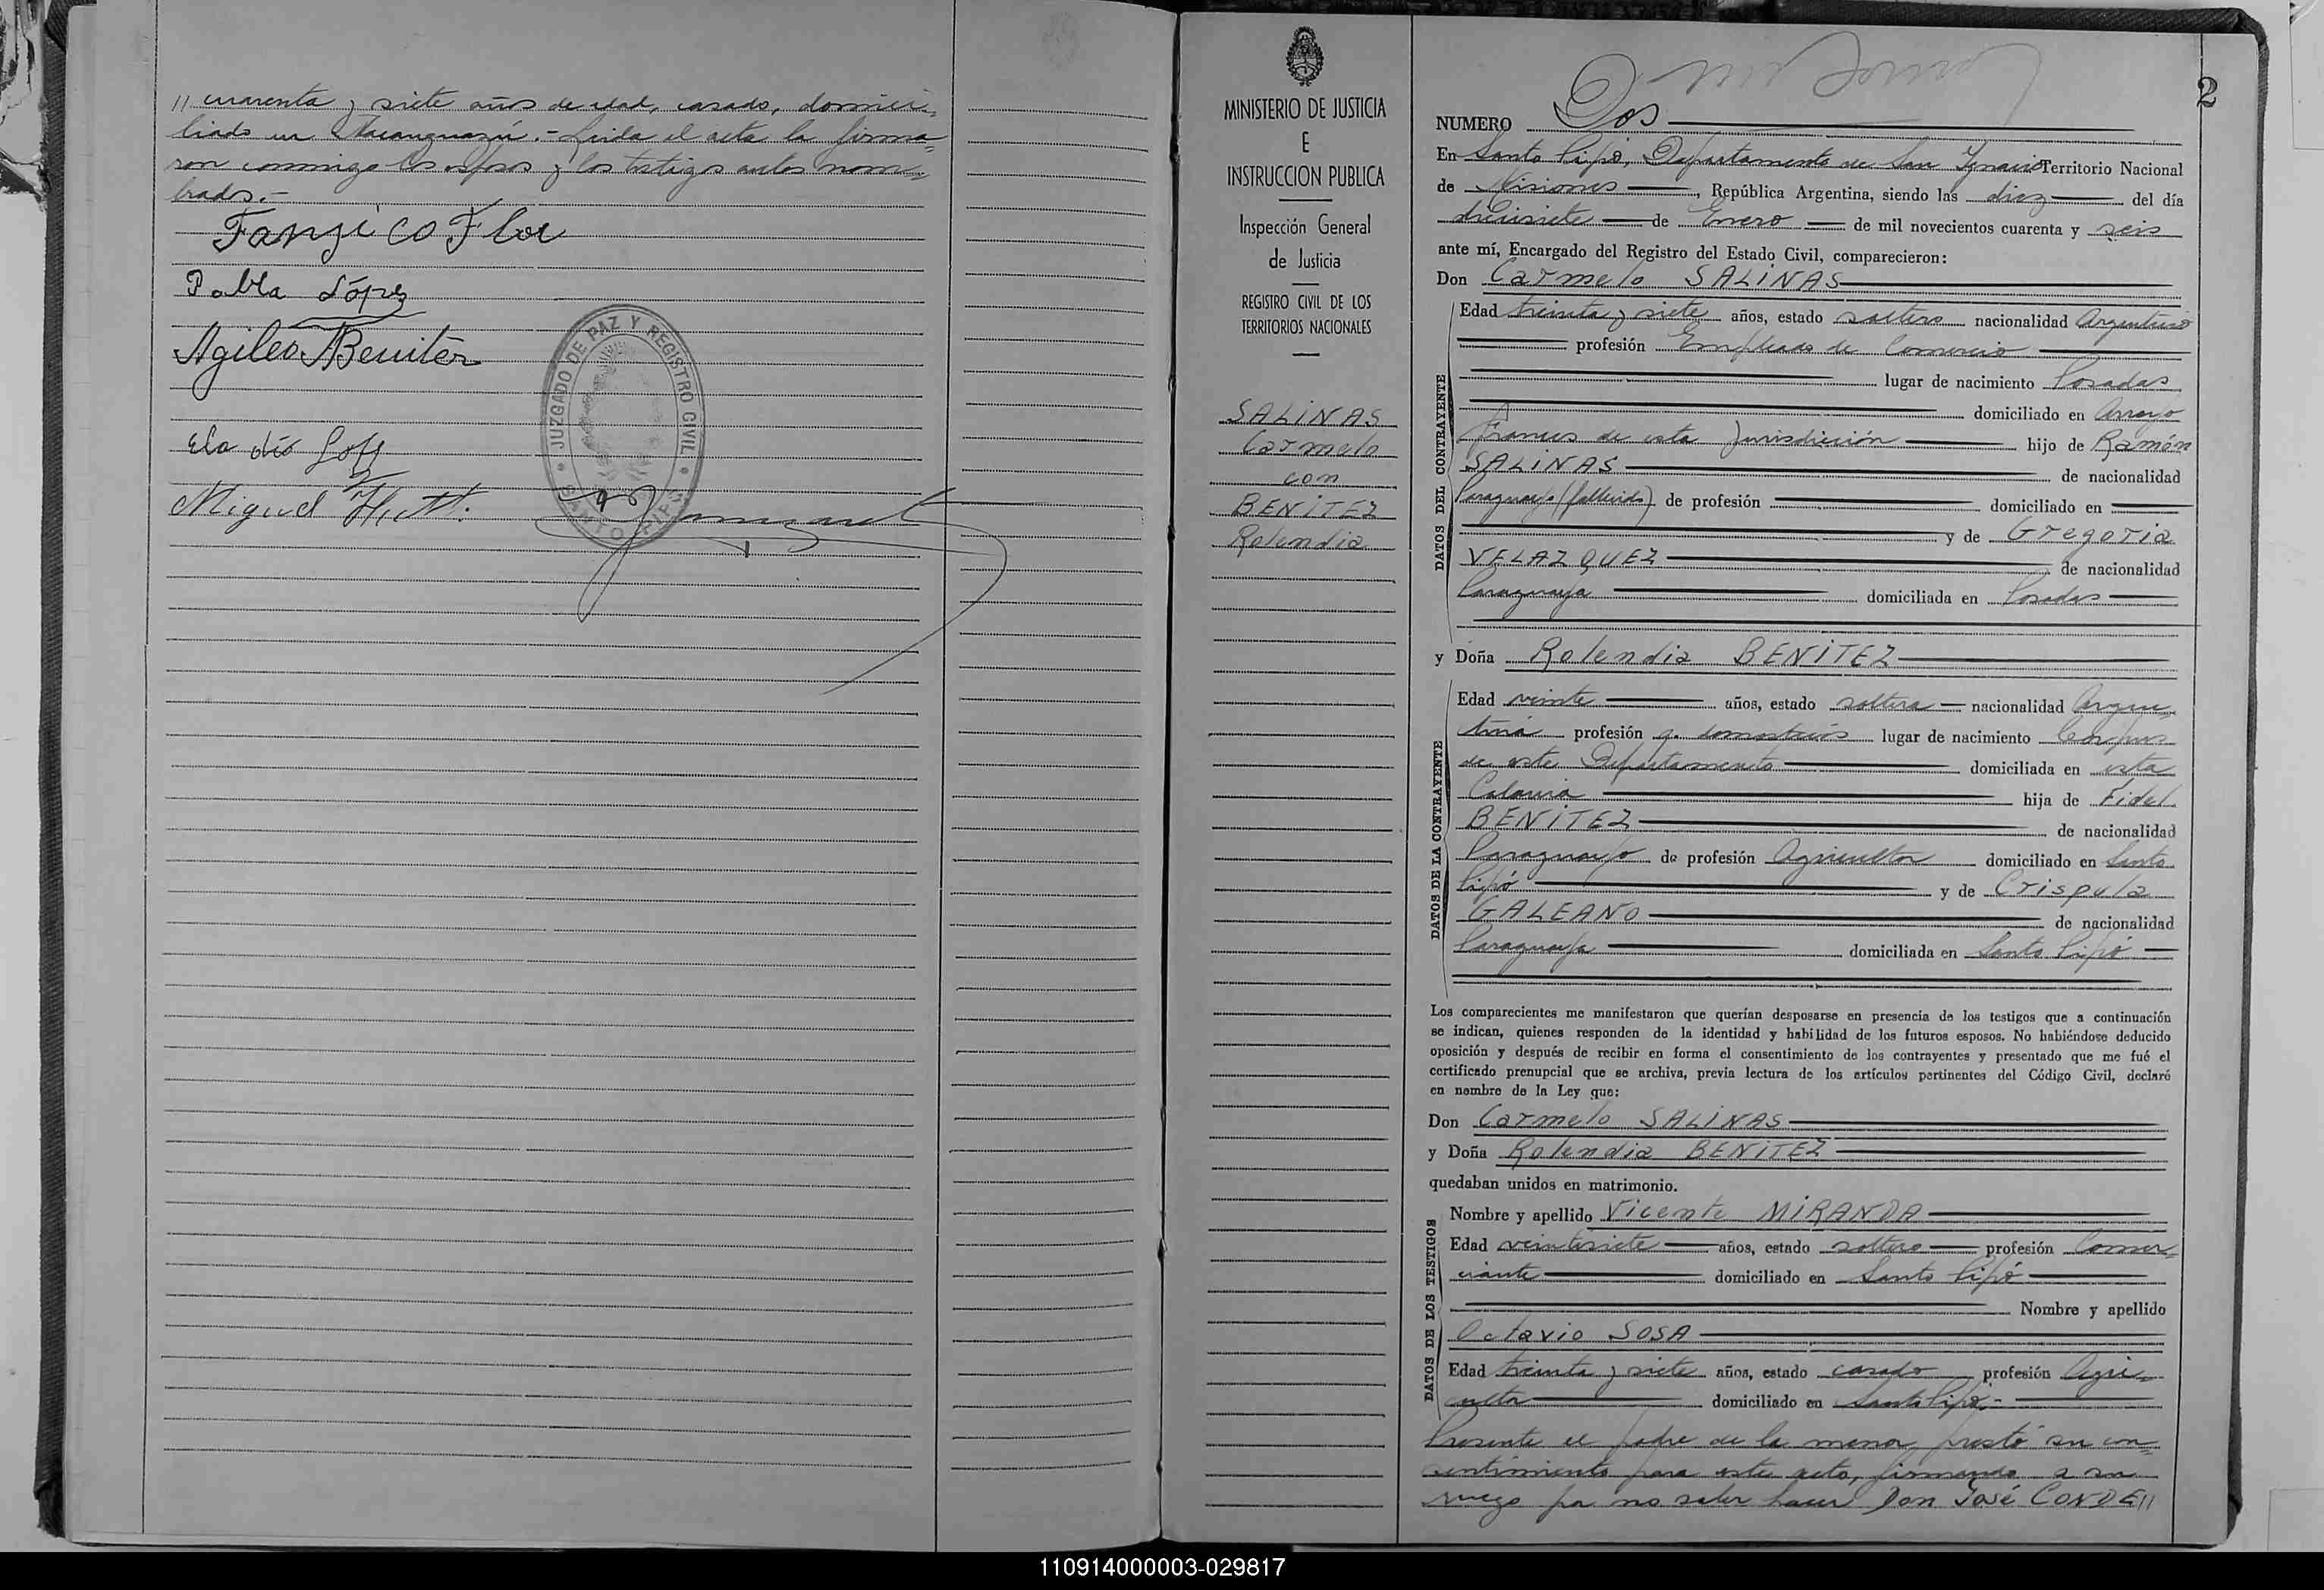 // cuarenta y siete años de edad, casado, domici-
liado en Ñacanguazú.- Leida el acta la firma=
ron conmigo los esposos y los testigos antes nom-
brados.-
Flor
Pabla López
Benitez
Miguel
JUZGADO DE PAZ Y REGISTRO CIVIL
SANTO PIPÓ
MINISTERIO DE JUSTICIA
E
INSTRUCCION PUBLICA
Inspección General
de Justicia
REGISTRO CIVIL DE LOS
TERRITORIOS NACIONALES
SALINAS
Carmelo
con
BENITEZ
Rolendia
2
NUMERO Dos
En Santo Pipó, Departamento de San Ignacio Territorio Nacional
de Misiones, República Argentina, siendo las diez del día
diecisiete de Enero de mil novecientos cuarenta y seis
ante mí, Encargado del Registro del Estado Civil, comparecieron:
Don Carmelo SALINAS
DATOS DEL CONTRAYENTE
Edad treinta y siete años, estado soltero nacionalidad Argentino
profesión Empleado de Comercio
lugar de nacimiento Posadas
domiciliado en Arroyo
Frances de esta Jurisdicción hijo de Ramón
SALINAS de nacionalidad
Paraguayo (fallecido) de profesión domiciliado en
y de Gregoria
VELAZQUEZ de nacionalidad
Paraguaya domiciliada en Posadas
y Doña Rolendia BENITEZ
DATOS DE LA CONTRAYENTE
Edad veinte años, estado soltera nacionalidad Argen=
tina profesión q. domésticos lugar de nacimiento Corpus
de este Departamento domiciliada en esta
Colonia hija de Fidel
BENITEZ de nacionalidad
Paraguayo de profesión Agricultor domiciliado en Santo
Pipó y de Crispula
GALEANO de nacionalidad
Paraguaya domiciliada en Santo Pipó
Los comparecientes me manifestaron que querían desposarse en presencia de los testigos que a continuación
se indican, quienes responden de la identidad y habilidad de los futuros esposos. No habiéndose deducido
oposición y después de recibir en forma el consentimiento de los contrayentes y presentado que me fué el
certificado prenupcial que se archiva, previa lectura de los artículos pertinentes del Código Civil, declaré
en nombre de la Ley que:
Don Carmelo SALINAS
y Doña Rolendia BENITEZ
quedaban unidos en matrimonio.
DATOS DE LOS TESTIGOS
Nombre y apellido Vicente MIRANDA
Edad veintisiete años, estado soltero profesión Comer=
ciante domiciliado en Santo Pipó
Nombre y apellido
Octavio SOSA
Edad treinta y siete años, estado casado profesión Agri=
cultor domiciliado en Santo Pipó.-
Presente el padre de la menor, prestó su con=
sentimiento para este acto, firmando a su
ruego por no saber hacer Don José CONDE//
110914000003-029817